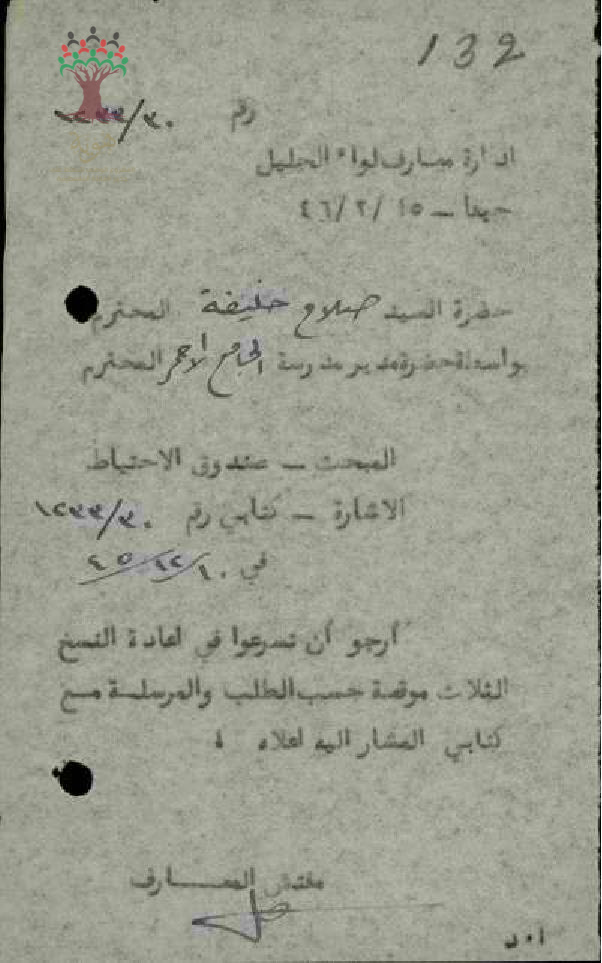 132
رقم ١٢٣٣/٣٠
ادارة معارف لواء الجليل
حيفا – ١٥ /٢/ ٤٦
حضرة السيد صلاح خليفة المحترم
بواسطة حضرة مدير مدرسة الجامع الاحمر المحترم
المبحث – صندوق الاحتياط
الاشارة – كتابي رقم ١٢٣٣/٣٠
في ١٠/ ١٢/ ٤٥
أرجو أن تسرعوا في اعادة النسخ
الثلاث موقعة حسب الطلب والمرسلة مع
كتابي المشار اليه اعلاه ،
مفتش المعارف
ا٠د